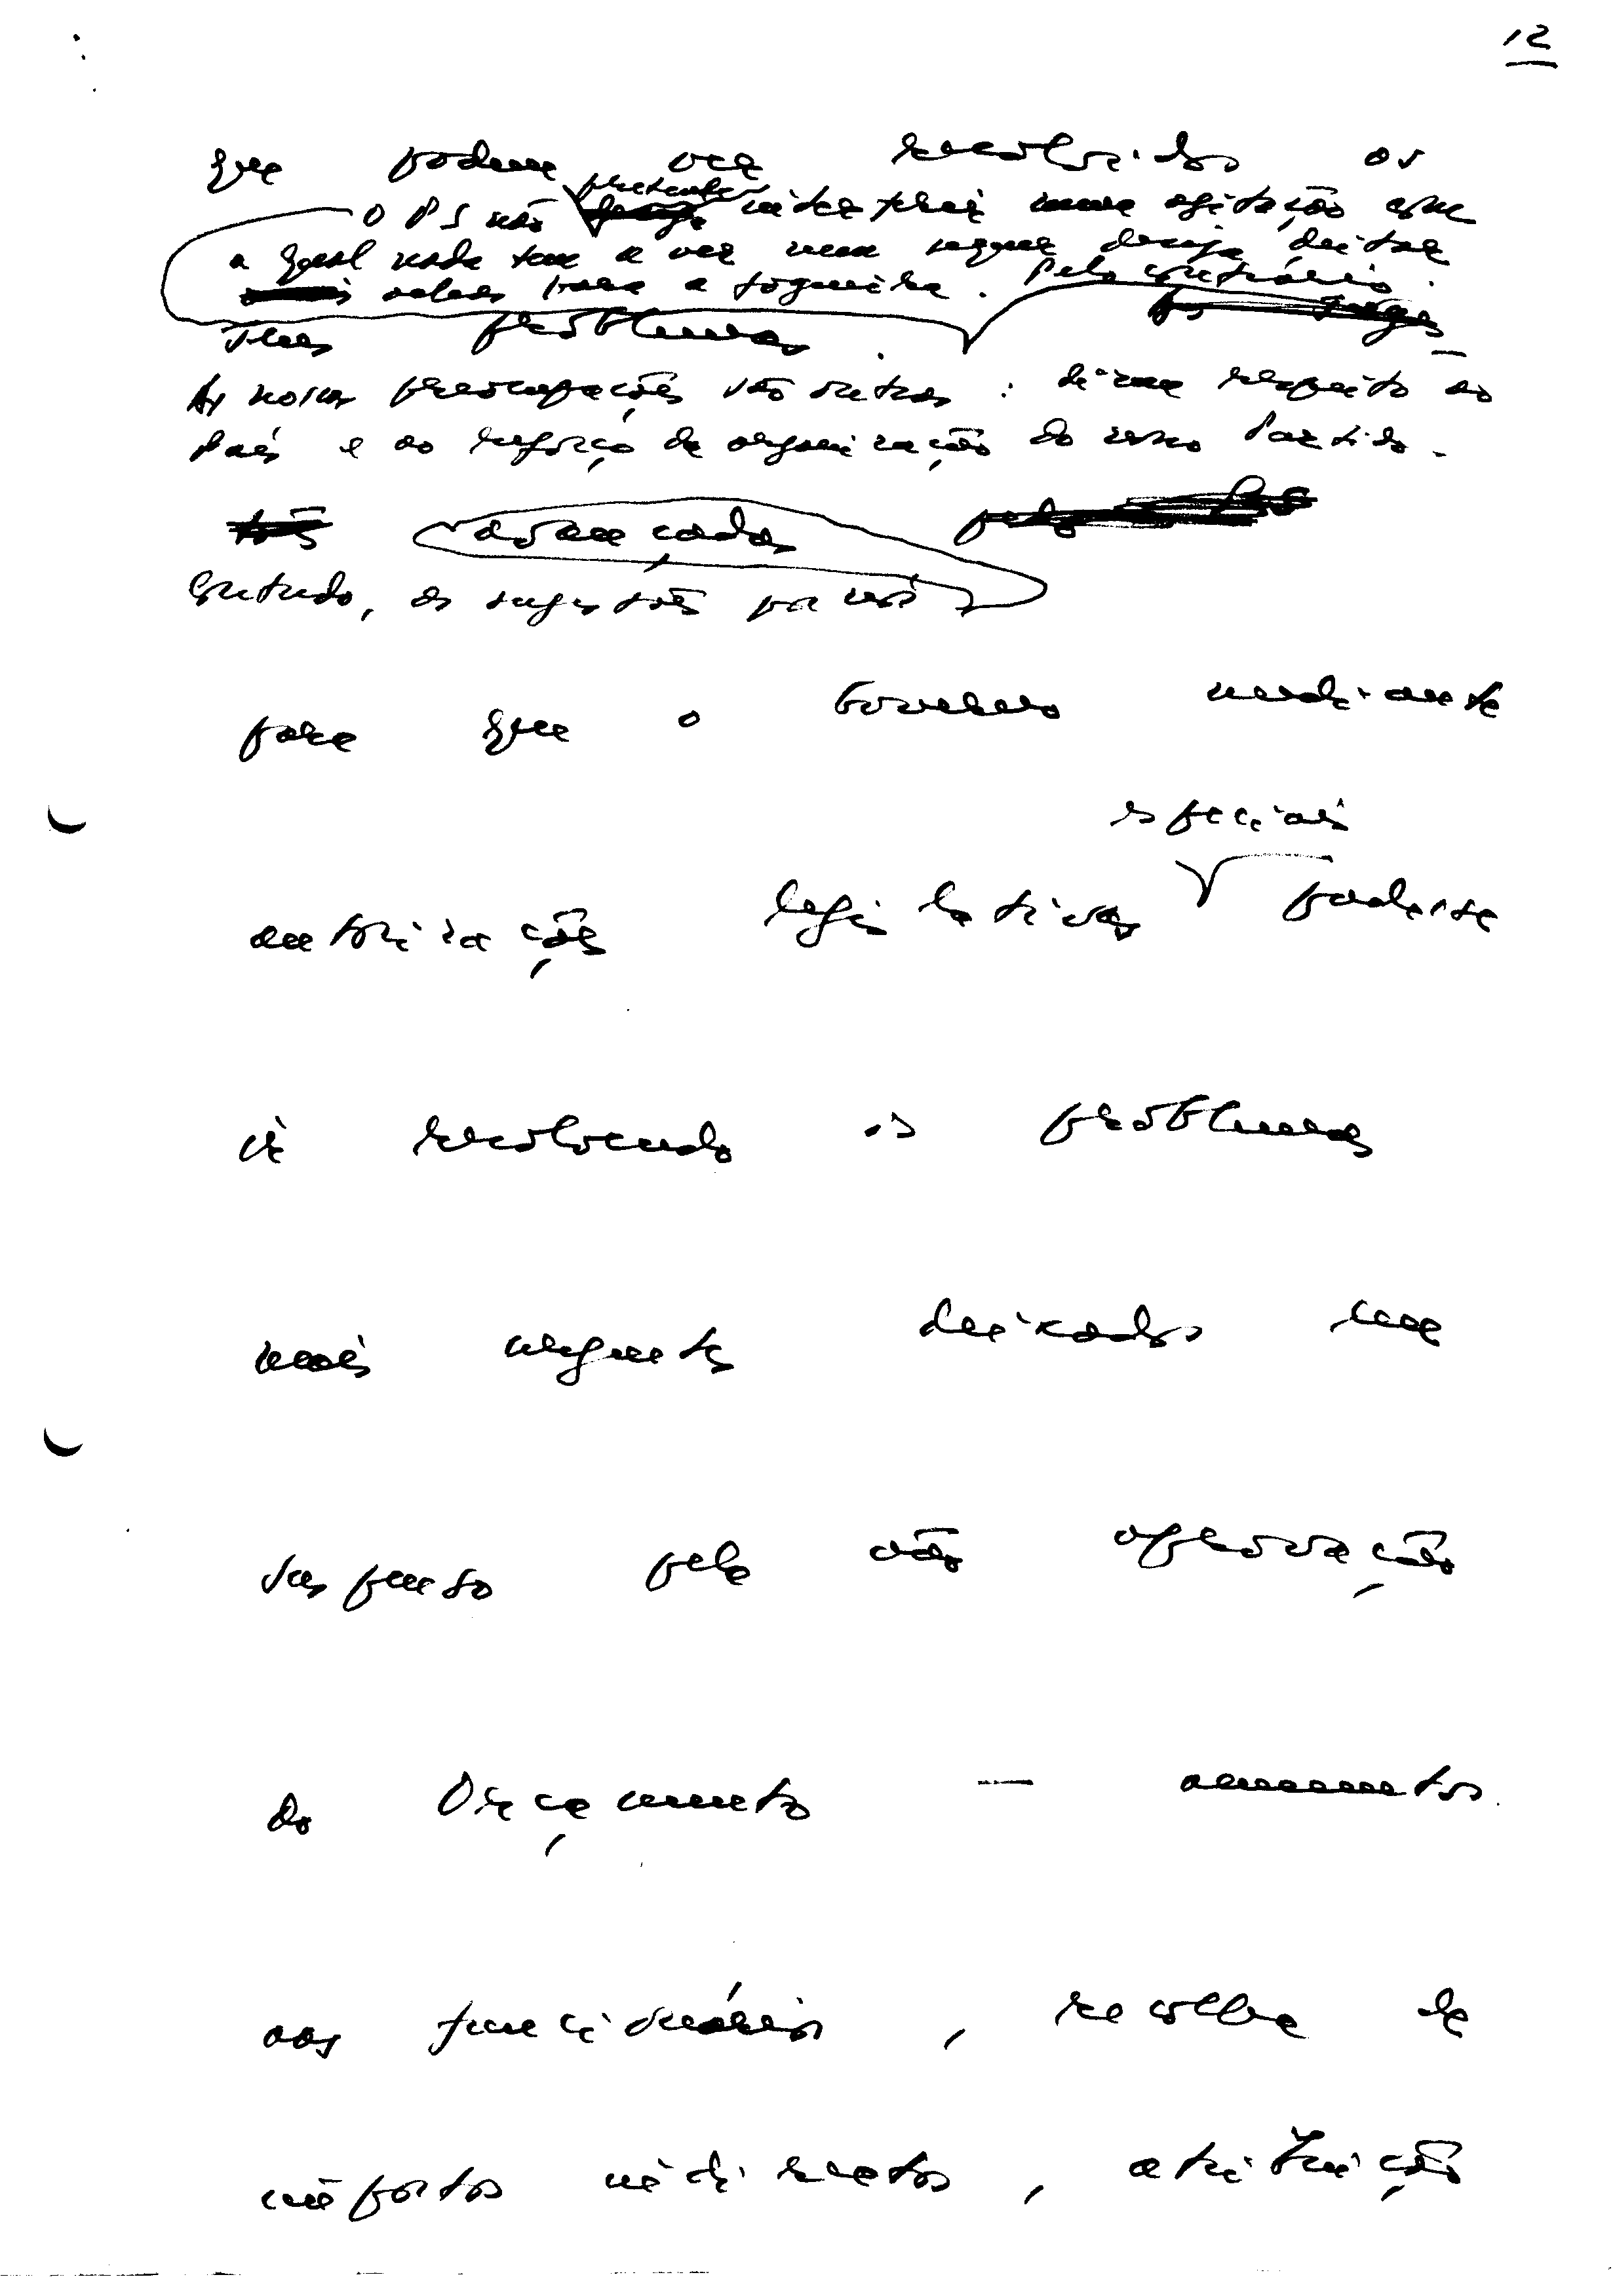 12
que podem ser resolvidos os
pretende
O PS não interferir numa agitação com
a qual nada tem a ver nem sequer deseja deitar
achas para a fogueira. Pelo contrário.
seus problemas.
As nossas preocupações são outras: dizem respeito ao
País e ao reforço da organização do nosso Partido.
avançadas
Contudo, as sugestões por nós
para que o Governo mediante
especiais
autorizações legislativas pudesse
ir resolvendo os problemas
mais urgentes deixados em
suspenso pela não aprovação
do Orçamento — aumentos
aos funcionários, recolha de
impostos indirectos, atribuição